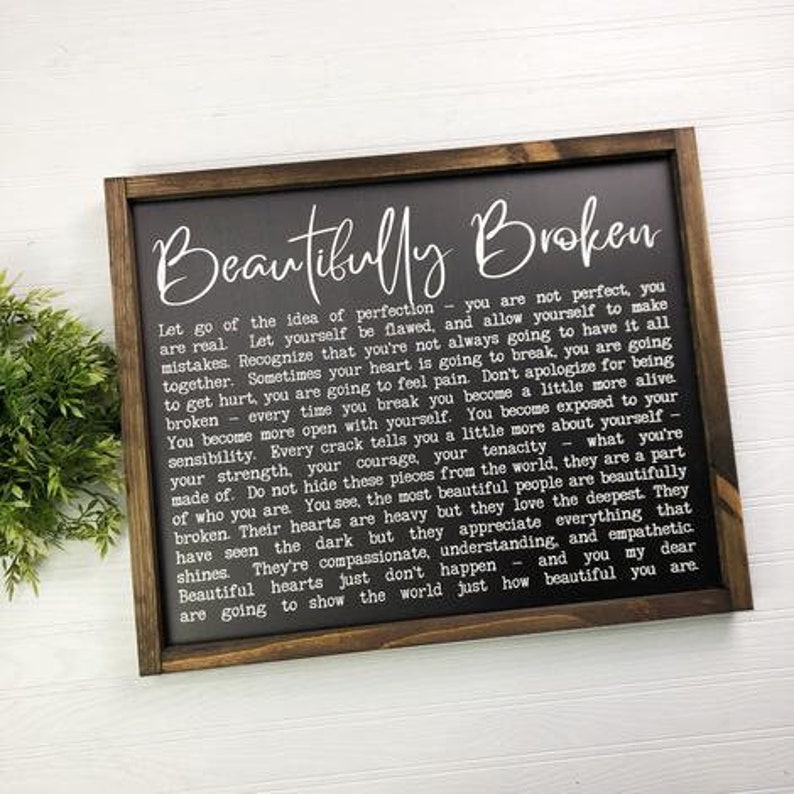 Beautifully Broken
Let go of the idea of perfection – you are not perfect, you
are real. Let yourself be flawed, and allow yourself to make
mistakes. Recognize that you're not always going to have it all
together. Sometimes your heart is going to break, you are going
to get hurt, you are going to feel pain. Don't apologize for being
broken – every time you break you become a little more alive.
You become more open with yourself. You become exposed to your
sensibility. Every crack tells you a little more about yourself –
your strength, your courage, your tenacity – what you're
made of. Do not hide these pieces from the world, they are a part
of who you are. You see, the most beautiful people are beautifully
broken. Their hearts are heavy but they love the deepest. They
have seen the dark but they appreciate everything that
shines. They're compassionate, understanding, and empathetic.
Beautiful hearts just don't happen – and you my dear
are going to show the world just how beautiful you are.